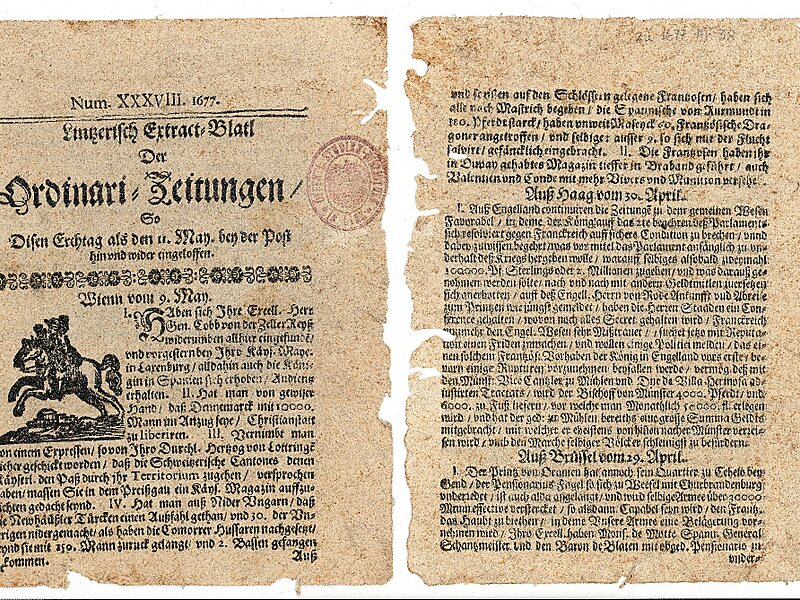 Num. XXXVIII. 1677.
Lintzerisch Extract-Blatl
Der
Ordinari-Zeitungen /
So
Disen Erchtag als den 11. May. bey der Post
hin vnd wider eingeloffen.
Wienn vom 9. May.
I. Haben sich Ihre Excell. Herr
Gen. Cobb von der Zeller Reyß
widerunden allhier eingefunden
vnd vorgestern bey Ihro Käys. Maye.
in Laxenburg / alldahin auch die Köni-
gin in Spanien sich erhoben / Audientz
erhalten. II. Hat man von gewiser
Hand / daß Dennemarck mit 10000.
Mann im Anzug seye / Christianstatt
zu liberiren. III. Vernimbt man
von einem Expressen / so von Ihro Durchl. Hertzog von Lottringen
hieher geschickt worden / daß die Schweitzerische Cantones denen
Käyserl. den Paß durch ihr Territorium zugehen / versprochen
haben / massen Sie in dem Preißgau ein Käys. Magazin auffzu-
richten gedacht seynd. IV. Hat man auß Nider Vngarn / daß
die Newhäußler Türcken einen Außfahl gethan / vnd 30. der Vn-
erigen nidergemacht / als haben die Comorrer Hussaren nachgesetzt /
seynd sie mit 150. Mann zuruck gelangt / vnd 2. Bassen gefangen
bekommen. Auß
zu 1677 Nr. 38
vnd auf den Schlössern gelegene Frantzosen / haben sich
alle nach Mastrich begeben / die Spannische von Rurmundt in
Pferdt starck / haben vnweit Maseyck 50. Frantzösische Dra-
goner angetroffen / vnd selbige ausser 9. so sich mit der Flucht
salvirt / gefäncklich eingebracht. II. Die Frantzosen haben ihr
in Duway gehabtes Magazin tieffer in Braband geführt / auch
Valentien vnd Conde mit mehr Vivers vnd Munition versehen.
Auß Haag vom 30. April.
I. Auß Engelland continuiren die Zeitung zu dem gemeinen Wesen
Favorabel / in deme der König auff das 2te begehren deß Parlaments
sich resolviert gegen Franckreich auff sichere Condition zu brechen / vnnd
dabey zuwissen begehrt / was vor mitel das Parlament anfänglich zu vn-
derhalt deß Kriegs hergeben wolle / warauff selbiges alsobald zweymahl
100000. Pf. Sterlings oder 2. Millionen zugeben / vnd was darauß ge-
nommen werden solte / nach vnd nach mit andern Geldmitlen zuersetzen
sich anerbotten / auff deß Engel. Herrn von Rode Ankunfft vnd Abrei-
zum Printzen wie jüngst gemeldet / haben die Herren Staaden ein Con-
ferentz gehalten / wovon noch alles Secret gehalten wird / Franckreich
nunmehr den Engel. Wesen sehr Mißtrauet / suchet jetzo mit Reputa-
tion einen Friden zumachen / vnd wollen einige Politici melden / das ei-
nen solchem Frantzös. Vorhaben der König in Engelland vors erste / be-
vorn einige Rupturen vorzunehmen beyfallen werde / vermög deß mit
den Münst. Vice Cantzler zu Mühlen vnd Duc de Villa Hermosa ab-
justirten Tractats / wird der Bischoff von Münster 4000. Pferdt / vnd
6000. zu Fuß liefern / vor welche man Monathlich fl. erlegen
wird / vnd hat der ged. zu Mühlen bereiths eine grosse Summa Gelds
mitgebracht / mit welcher er ehistens von hier nacher Münster verrei-
sen wird / vnd den Marche selbiger Völcker schleinigst zu befürdern.
Auß Brüssel vom 29. April.
I. Der Printz von Oranien hat annoch sein Quartier zu Echelo bey
Gend / der Pensionarius Fagel so sich zu Wesel mit Churbrandenburg
vnderredet / ist auch alda angelangt / vnd wird selbige Armee über 30000
Mann effective verstercket / so alsdann Capabel seyn wird / den Frantz.
das Haubt zu biethen / in deme Vnsere Armee eine Belägerung vor-
nehmen wird / Ihro Excell. haben Mons. de Motte, Spann. General
Schantzmeister vnd den Baron de Blaten mit obged. Pensionario zu
vnder-